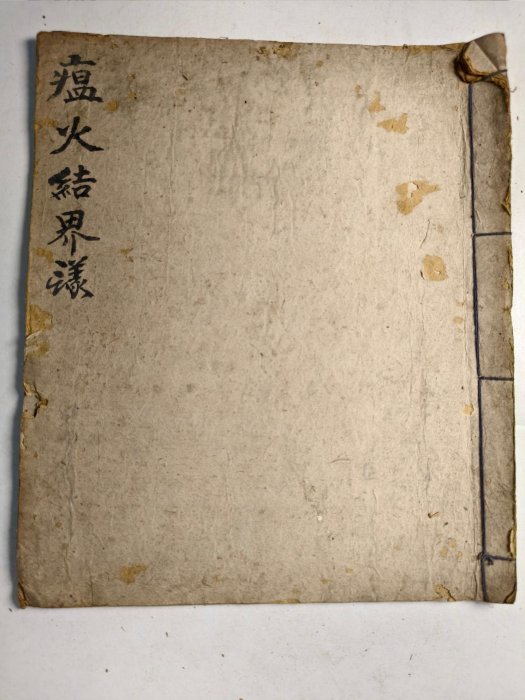 瘟火結界漾